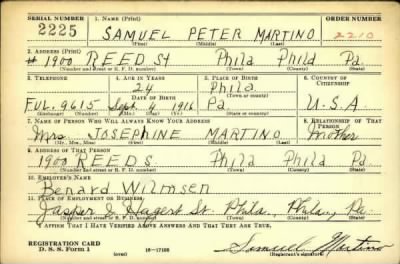 SERIAL NUMBER 1. NAME (Print) ORDER NUMBER
2225 SAMUEL PETER MARTINO 2210
(First) (Middle) (Last)
2. ADDRESS (Print)
# 1900 REED St Phila Phild Pa.
(Number and street or R. F. D. number) (Town) (County) (State)
3. TELEPHONE 4. AGE IN YEARS 5. PLACE OF BIRTH 6. COUNTRY OF CITIZENSHIP
24 Phila
DATE OF BIRTH (Town or county)
FUL. 9615 Sept 1916 Pa. U.S.A
(Exchange) (Number) (Mo.) (Day) (Yr.) (State or country)
7. NAME OF PERSON WHO WILL ALWAYS KNOW YOUR ADDRESS 8. RELATIONSHIP OF THAT PERSON
Mrs JOSEPHINE MARTINO Mother
(Mr., Mrs., Miss) (First) (Middle) (Last)
9. ADDRESS OF THAT PERSON
1900 REED S. Phila Phila Pa
(Number and street or R. F. D. number) (Town) (County) (State)
10. EMPLOYER'S NAME
Benard Wilmsen
11. PLACE OF EMPLOYMENT OR BUSINESS
Jasper & Hagert St. Phila, Phila, Pa.
(Number and street or R. F. D. number) (Town) (County) (State)
I AFFIRM THAT I HAVE VERIFIED ABOVE ANSWERS AND THAT THEY ARE TRUE.
REGISTRATION CARD
D. S. S. Form 1 (over) 16-17105 Samuel Martino
(Registrant's signature)